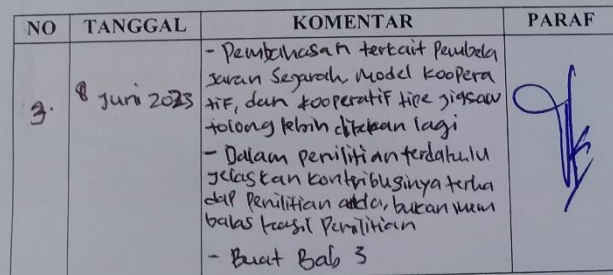 NO TANGGAL KOMENTAR PARAF
3. 8 Juni 2023 - Pembahasan terkait Pembela
jaran Sejarah, model Koopera
tif, dan kooperatif tipe jigsaw
tolong lebih ditekan lagi
- Dalam penilitian terdahulu
jelaskan kontribusinya terha
dap penilitian anda, bukan mem
bahas hasil Penilitian
- Buat Bab 3